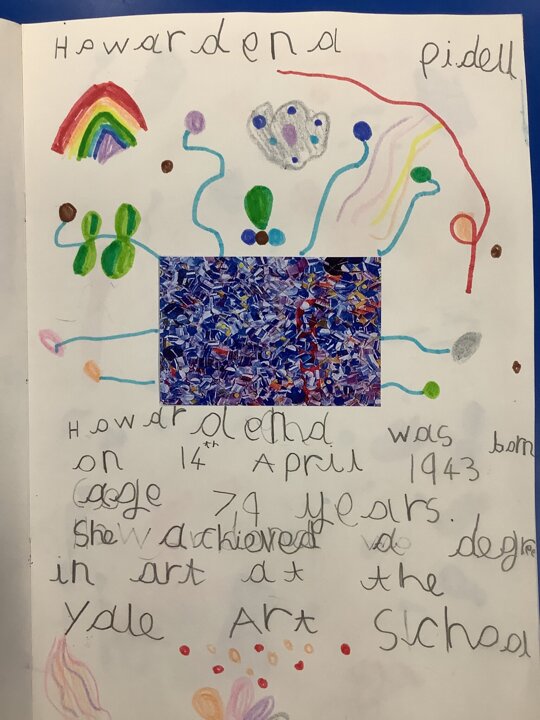 Howardena Pidell
Howardena was born
on 14th April 1943
(age 79 years.
She achieved a degree
in art at the
Yale Art School